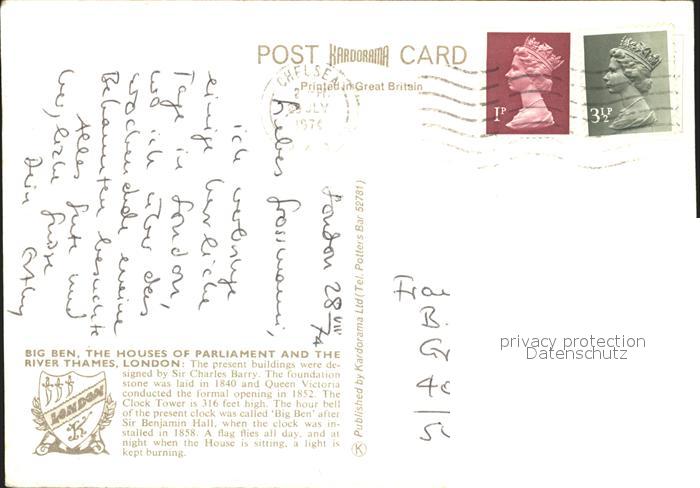 POST KARDORAMA CARD
Printed in Great Britain
CHELSEA
JLY
1974
1P
3½P
London 28 VII 74
Liebes
ich verbringe
einige herrliche
Tage in London,
wo ich über das
Wochenende meine
Bekannten besuchte
Alles Gute und
herzliche Grüße
Dein
Published by Kardorama Ltd (Tel. Potters Bar 52781)
K
B.
privacy protection
Datenschutz
BIG BEN, THE HOUSES OF PARLIAMENT AND THE
RIVER THAMES, LONDON: The present buildings were de-
signed by Sir Charles Barry. The foundation
stone was laid in 1840 and Queen Victoria
conducted the formal opening in 1852. The
Clock Tower is 316 feet high. The hour bell
of the present clock was called 'Big Ben' after
Sir Benjamin Hall, when the clock was in-
stalled in 1858. A flag flies all day, and at
night when the House is sitting, a light is
kept burning.
LONDON
K